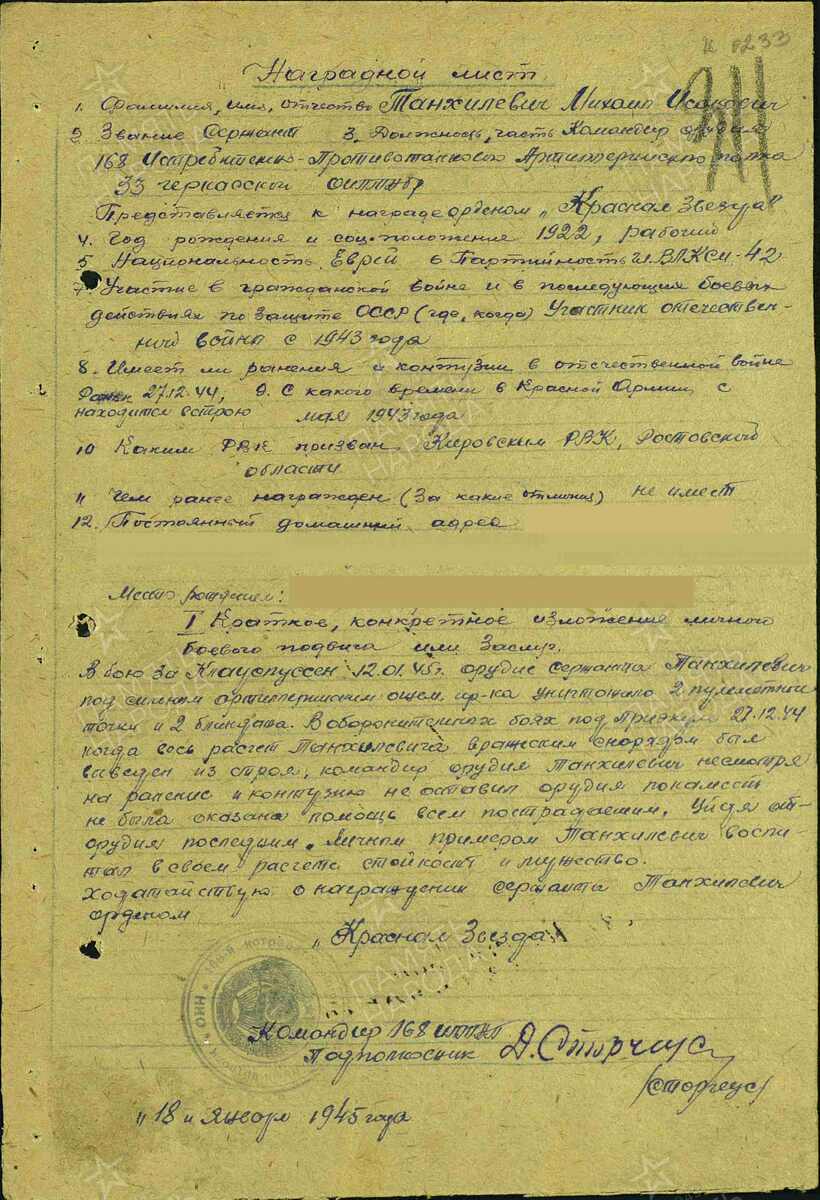 Наградной лист
1. Фамилия, имя, отчество Танхилевич Михаил Исакович
2 Звание Сержант 3. Должность, часть Командир орудия
168 Истребительно-Противотанкового Артиллерийского полка
33 черкасской оиптабр
Представляется к награде орденом „Красная Звезда"
4. Год рождения и соц-положение 1922, рабочий
5 Национальность Еврей 6 Партийность чл. ВЛКСМ-42
7. Участие в гражданской войне и в последующих боевых
действиях по защите СССР (где, когда) Участник отечествен-
ной войны с 1943 года
8. Имеет ли ранения и контузии в отечественной войне
Ранен 27.12.44, 9. С какого времени в Красной Армии с
находится в строю мая 1943 года
10 Каким РВК призван Кировским РВК, Ростовской
области
11 Чем ранее награжден (За какие отличия) не имеет
12. Постоянный домашний адрес
Место рождения:
I Краткое, конкретное изложение личного
боевого подвига или Заслуг.
В бою за 12.01.45г. орудие сержанта Танхилевич
под сильным артиллерийским огнем пр-ка уничтожило 2 пулеметных
точки и 2 блиндажа. В оборонительных боях под 27.12.44
когда весь расчет Танхилевича вражеским снарядом был
выведен из строя, командир орудия Танхилевич несмотря
на ранение и контузию не оставил орудия покамест
не была оказана помощь всем пострадавшим, уйдя от
орудия последним. Личным примером Танхилевич воспи-
тал в своем расчете стойкость и мужество.
Ходатайствую о награждении сержанта Танхилевич
орденом
„Красная Звезда"
Командир 168 иптап
Подполковник Д. Сторчеус
/Сторчеус/
"18" января 1945 года